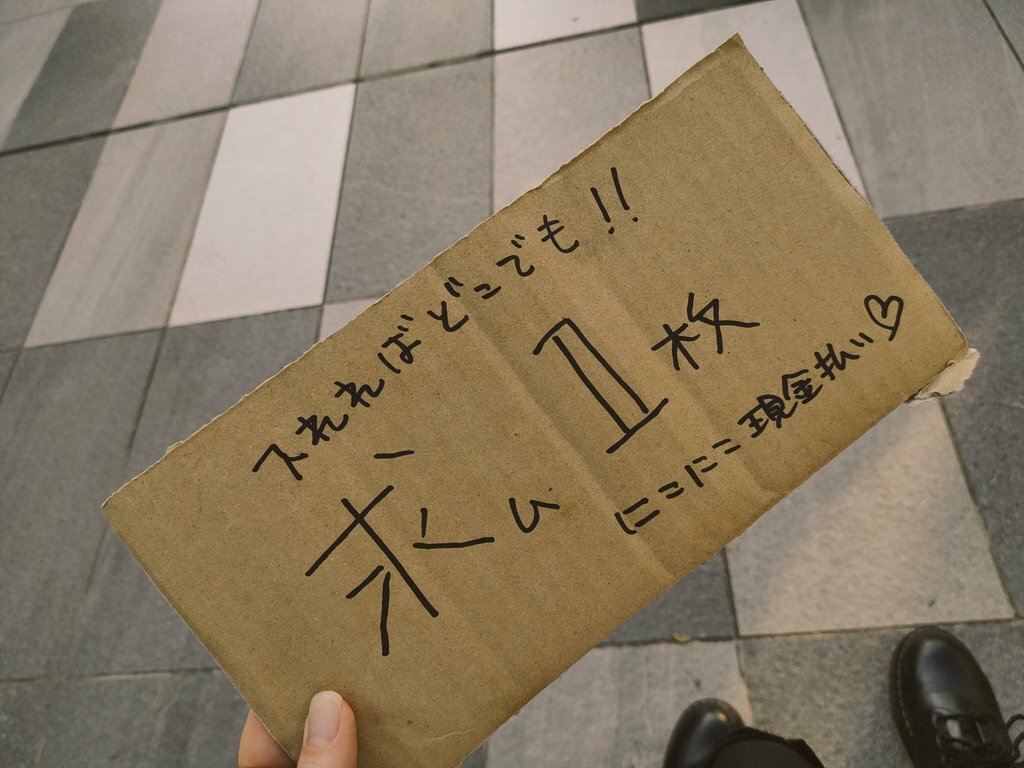 入れればどこでも!!
求ム 1枚
にこにこ現金払い♡